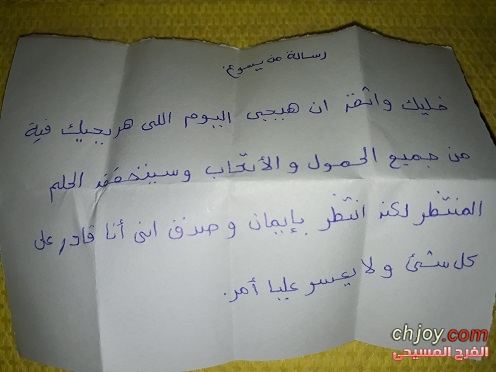 رسالة من يسوع:
خليك واثقه ان هيجى اليوم اللى هريحك فية
من جميع الحمول و الأتعاب وسيتحقق الحلم
المنتظر لكن انتظر بإيمان و صدق انى أنا قادر على
كل شئ ولا يعسر عليا أمر.
chjoy.com
الفرح المسيحى